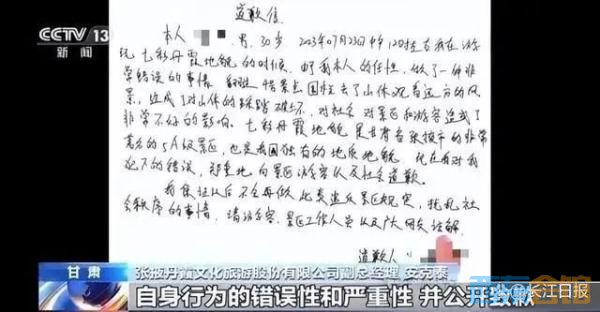 CCTV 13
新闻
道歉信
本人 男，30岁 2023年07月23日中午12点左右我在游
玩七彩丹霞地貌的时候，由于我本人的任性，做了一件非
常错误的事情 翻越 景点围栏去了山体 观看远方的风
景，造成了对山体的踩踏破坏，对社会 对景区和游客造成了
非常不好的影响。七彩丹霞地貌 是甘肃省张掖市的非常
著名的5A级景区，也是我国独有的地质地貌 现在我对我
犯下的错误，郑重地 向景区 游客以及社会道歉。
我保证以后不会再做此类违反景区规定，扰乱社
会秩序的事情，请游客、景区工作人员以及广大网友谅解
道歉人
甘肃
张掖丹霞文化旅游股份有限公司副总经理 安克泰
自身行为的错误性和严重性 并公开致歉
长江日报